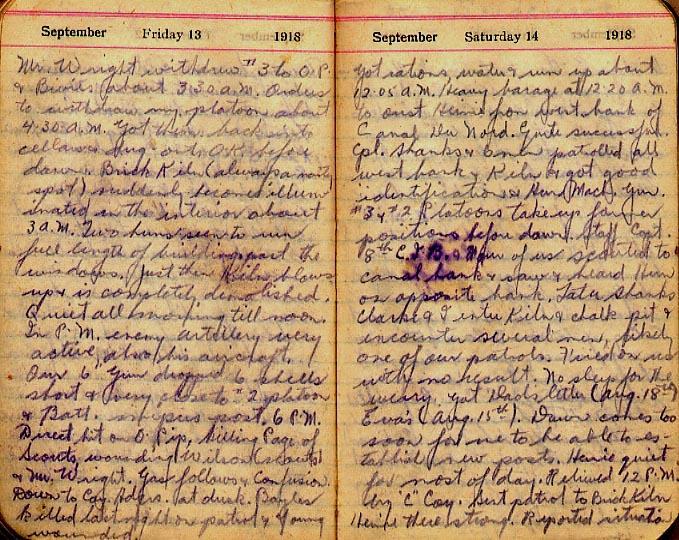 September Friday 13 1918
Mr. Wright withdrew #3 to O.P.
& Bivvies about 3:30 A.M. Orders
to withdraw my platoon about
4:30 A.M. Got them back into
cellars & dug outs OK before
dawn. Brick Kiln (always a nasty
spot) suddenly becomes illum
inated in the interior about
3 A.M. Two huns seen to run
full length of building past the
windows. Just then Kiln blows
up & is completely demolished.
Quiet all morning till noon.
In P.M. enemy artillery very
active, also his aircraft.
Our 6" Gun dropped 6 shells
short & very close to #2 platoon
& Batt. post. 6 P.M.
Direct hit on O Pip, killing Page of
Scouts, wounding Wilson (scouts)
& Mr. Wright. Gas follows & Confusion.
Down to Coy Hdqrs. at dusk. Bayles
killed last night on patrol & Young
wounded.
September Saturday 14 1918
Got rations, water & rum up about
12.05 A.M. Heavy barage at 12.20 A.M.
to oust Heinie from west bank of
Canal Du Nord. Quite successful.
Cpl. Shanks & patrolled all
west bank & Kiln & got good
identifications & Hun Mach. Gun.
#3 & #2 Platoons take up former
positions before dawn. Staff Capt.
8th C.I.B. & of us scouted to
canal bank & saw & heard Hun
on opposite bank. Later Shanks
Clarke & I enter Kiln & chalk pit &
encounter several men, likely
one of our patrols. Fired on us
with no result. No sleep for the
weary. Got Dads letter (Aug. 18th)
Eva's (Aug. 15th). Dawn comes too
soon for me to be able to es-
tablish new posts. Heinie quiet
for most of day. Relieved 12 P.M.
by "C" Coy. Sent patrol to Brick Kiln
Heinie there strong. Reported situation